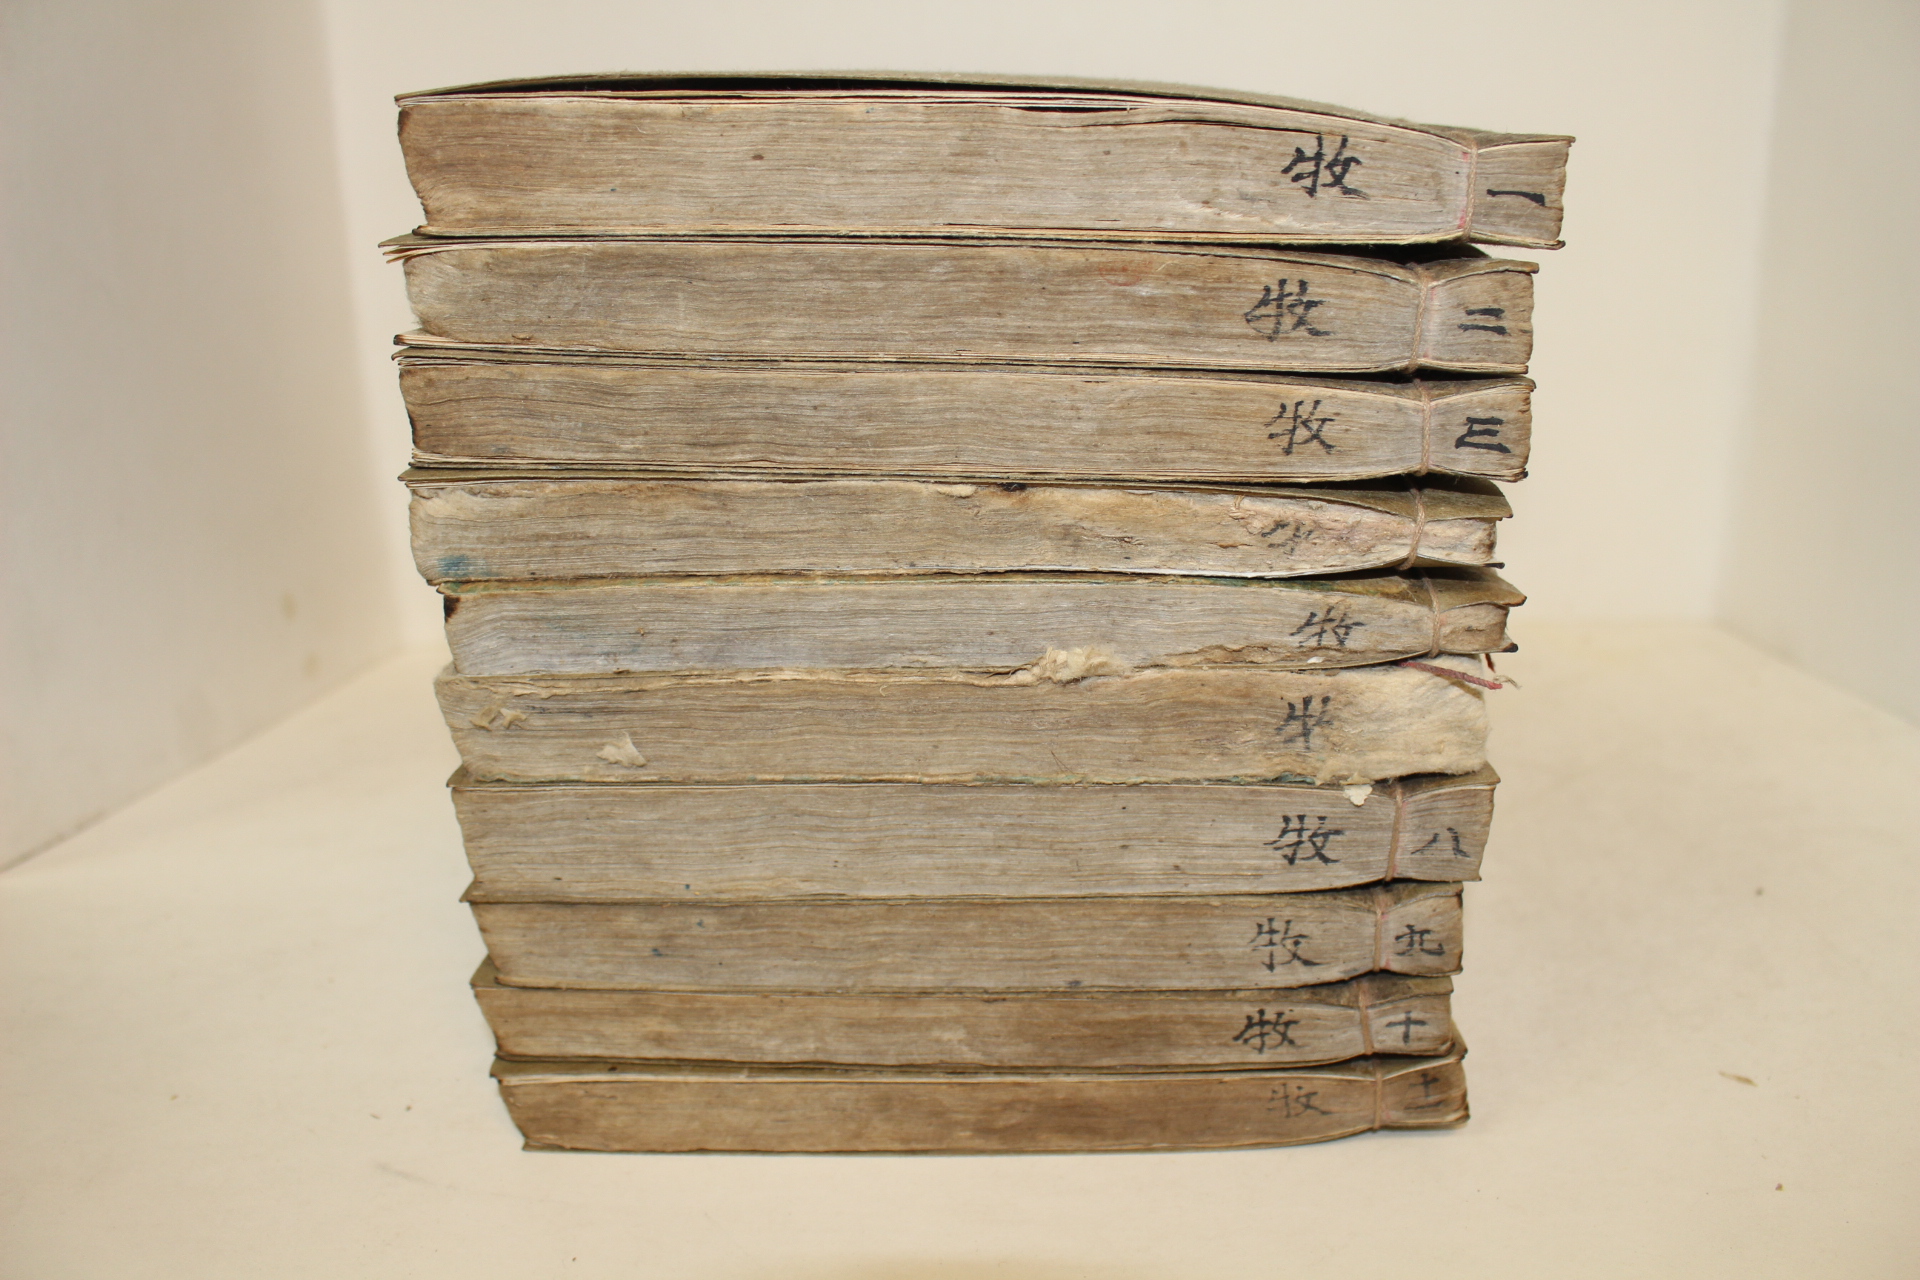 牧 一
牧 二
牧 三
牧
牧
牧 八
牧 九
牧 十
牧 十一